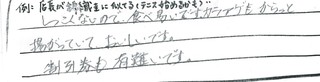 例) 店長が錦織圭に似てる(テニス始めるかも)"
しつこくないので、食べ易いです。カラアゲもからっと
揚がっていて、おいしいです。
割引券も有難いです。